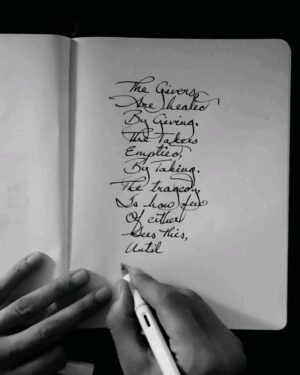 The Givers
Are healed
By Giving.
The Takers
Emptied,
By Taking.
The tragedy
Is how few
Of either
Sees this,
Until